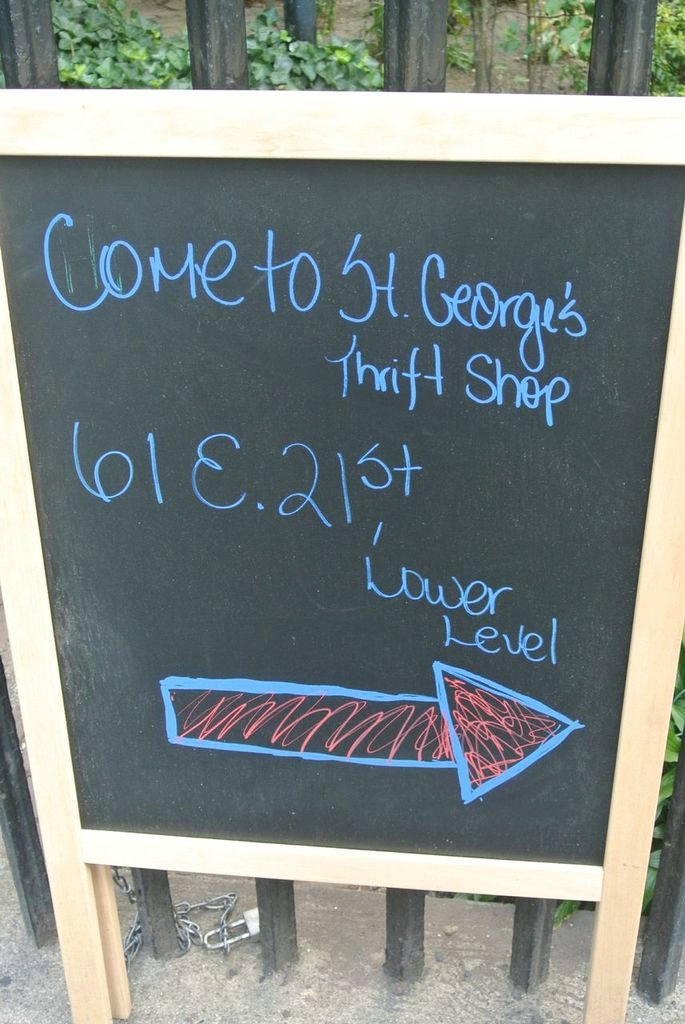 Come to St. George's
Thrift Shop
61 E. 21st
Lower
Level